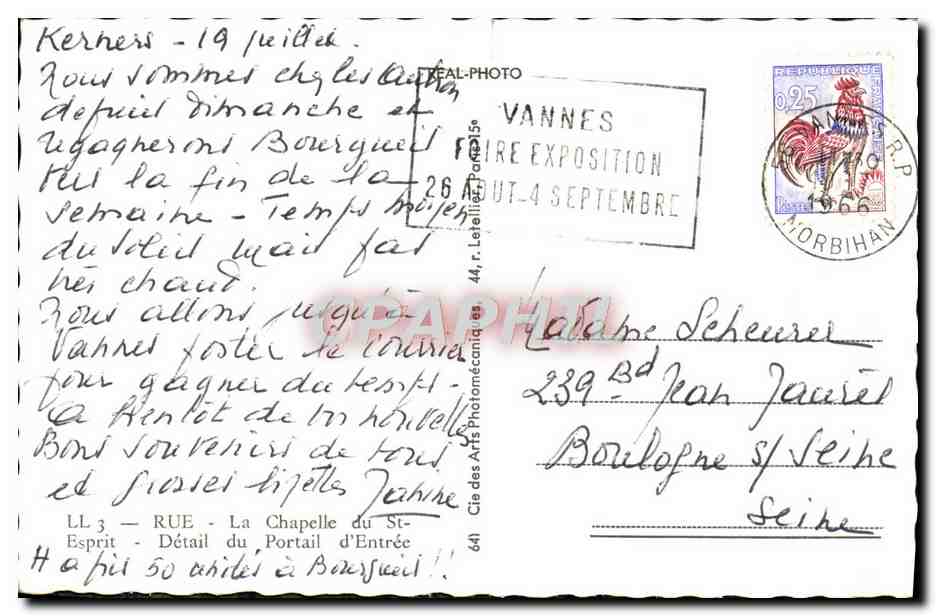 Kerners - 19 juillet.
Nous sommes chez les
depuis dimanche et
regagnerons Bourgueil
vers la fin de la
semaine - Temps moyen
du soleil mais pas
très chaud.
Nous allons jusqu'à
Vannes poster le courrier
pour gagner du temps -
A bientôt de vos nouvelles
Bons souvenirs de tous
et grosses bisettes Janine
LL 3 — RUE - La Chapelle du St-
Esprit - Détail du Portail d'Entrée
a pris 50 à Bourgueil !!
REAL-PHOTO
641 Cie des Arts Photomécaniques, 44, r. Letellier, Paris-15e
VANNES
FOIRE EXPOSITION
26 AOUT-4 SEPTEMBRE
REPUBLIQUE FRANÇAISE
0,25
Postes
VANNES R.P.
1966
MORBIHAN
CPAPHIL
Madame Scheurer
239 Bd Jean Jaurès
Boulogne s/ Seine
Seine